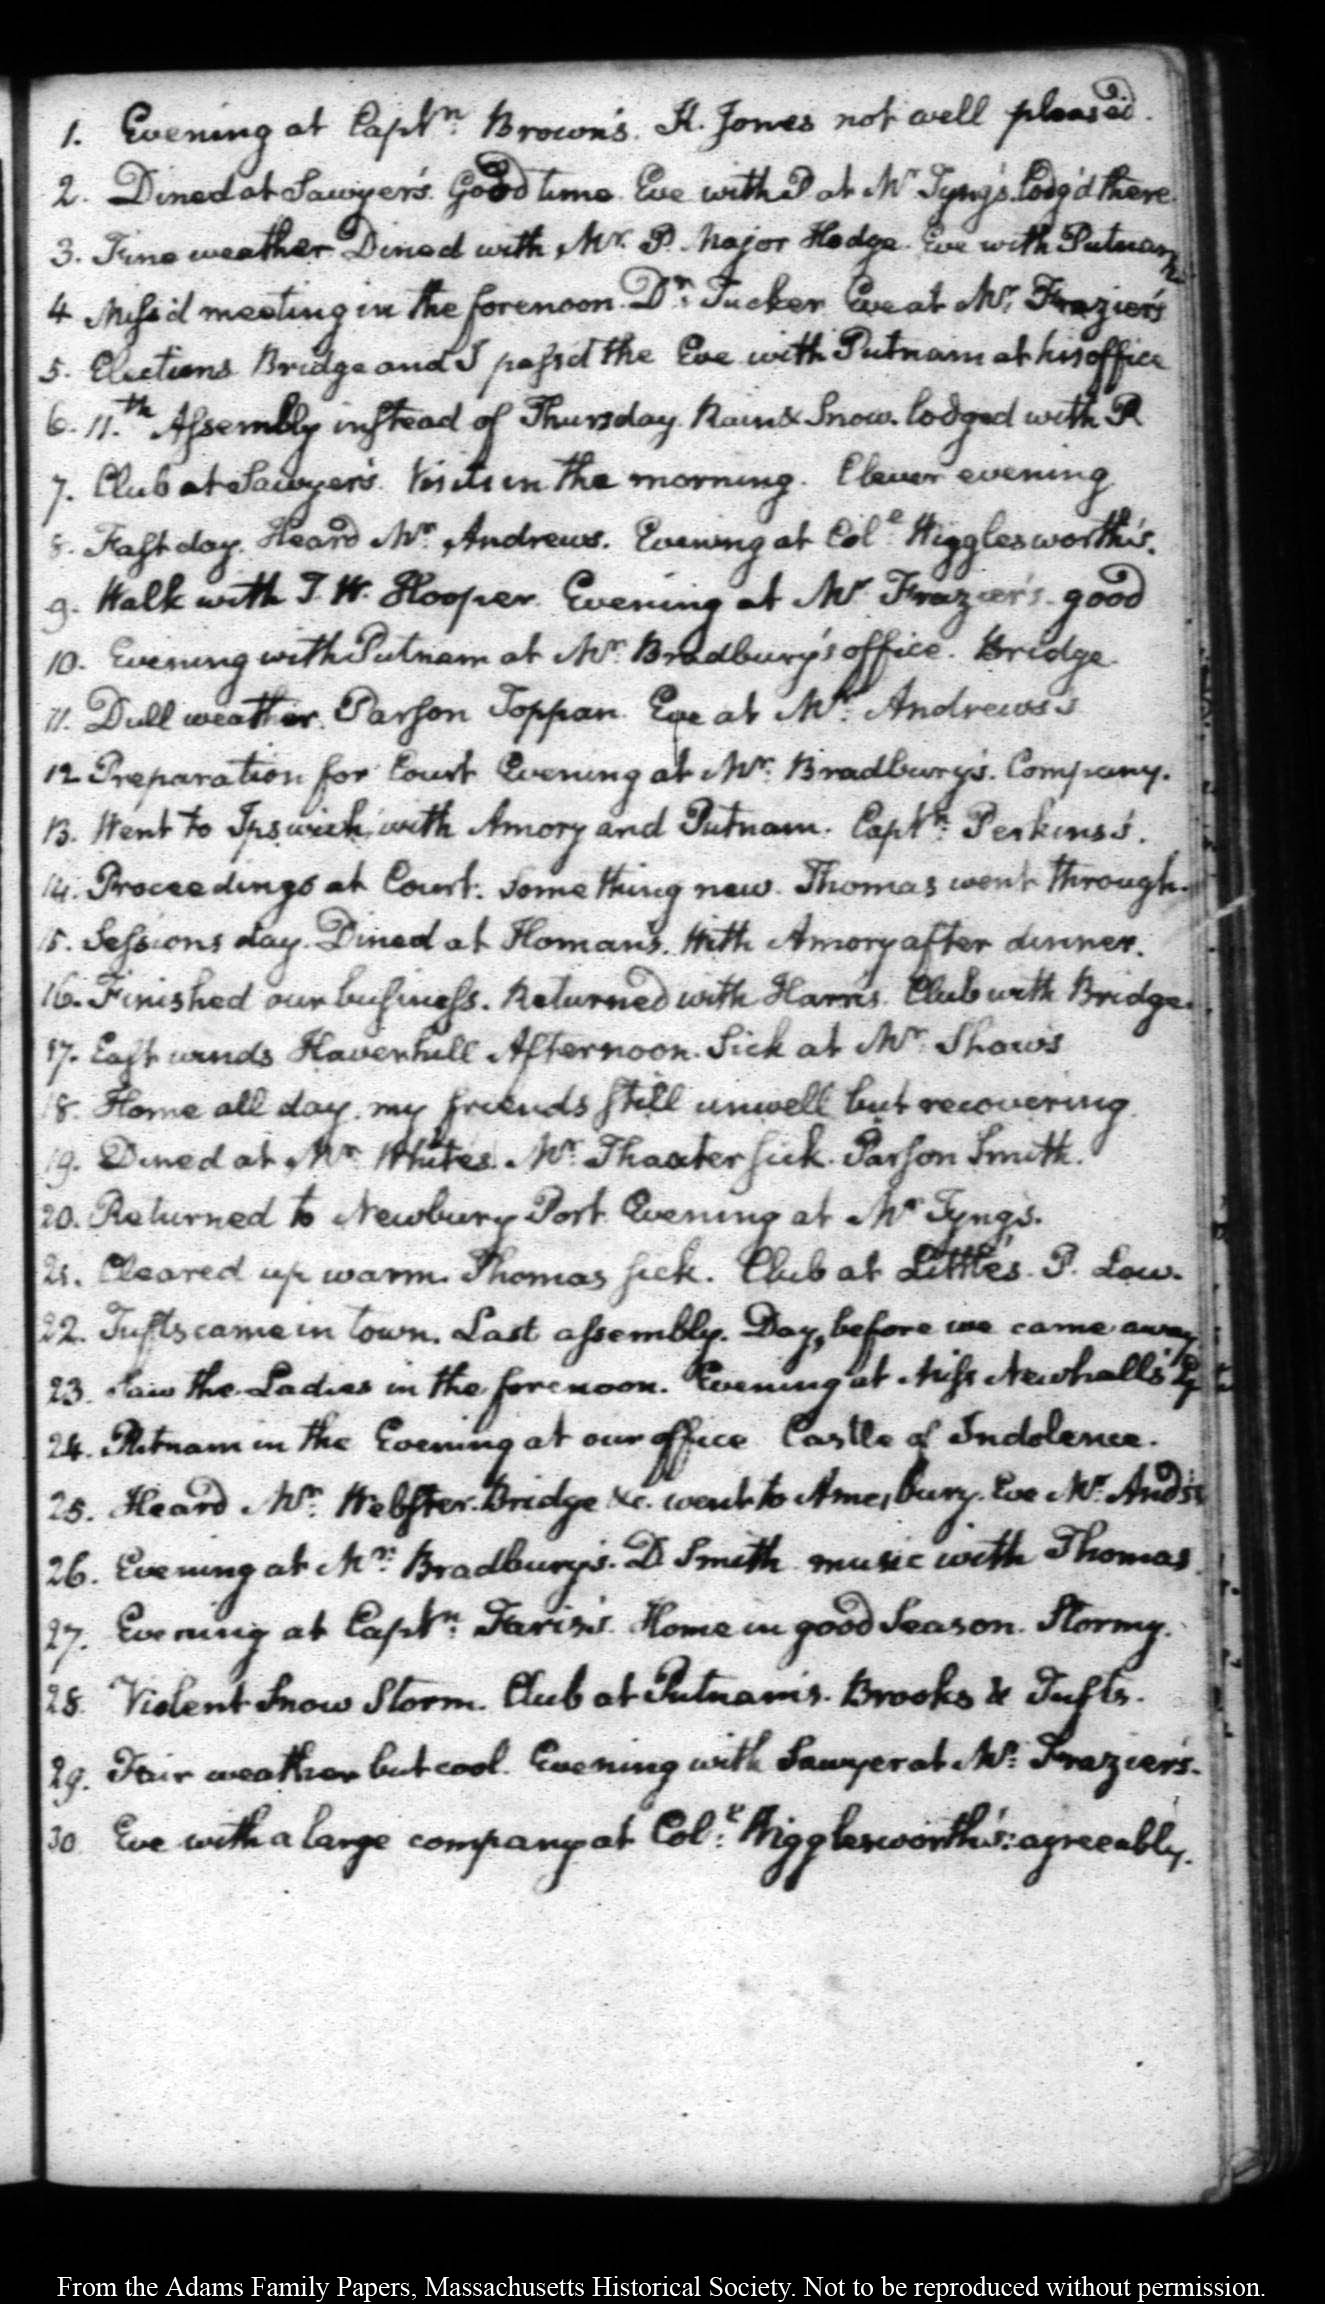 1. Evening at Captn: Brown's. H. Jones not well pleased.
2. Dined at Sawyer's. Good time. Eve with P at Mr Tyng's. lodg'd there.
3. Fine weather Dined with Mr. P. Major Hodge. Eve with Putnam
4 Miss'd meeting in the forenoon. Dr: Tucker Eve at Mr: Frazier's
5. Elections Bridge and I pass'd the Eve with Putnam at his office
6. 11.th Assembly instead of Thursday. Rain & Snow. lodged with P
7. Club at Sawyer's. Visits in the morning. Clever evening
8. Fast day. Heard Mr. Andrews. Evening at Col:e Wigglesworth's.
9. Walk with J. W. Hooper. Evening at Mr Frazier's. good
10. Evening with Putnam at Mr: Bradbury's office. Bridge.
11. Dull weather. Parson Toppan. Eve at Mr: Andrews's
12 Preparation for Court Evening at Mr: Bradbury's. Company.
13. Went to Ipswich, with Amory and Putnam. Captn: Perkins's.
14. Proceedings at Court. Something new. Thomas went through.
15. Sessions day. Dined at Homan's. With Amory after dinner.
16. Finished our business. Returned with Harris. Club with Bridge.
17. East winds Haverhill Afternoon. Sick at Mr Shaw's
18. Home all day. my friends still unwell but recovering.
19. Dined at Mr White's. Mr: Thaxter sick. Parson Smith.
20. Returned to Newbury Port Evening at Mr Tyng's.
21. Cleared up warm. Thomas sick. Club at Little's. P. Low.
22. Tufts came in town. Last assembly. Day, before we came away
23. Saw the Ladies in the forenoon. Evening at Miss Newhall's
24. Putnam in the Evening at our office Castle of Indolence.
25. Heard Mr. Webster. Bridge &c. went to Amesbury. Eve Mr. And's
26. Evening at Mr: Bradbury's. D Smith music with Thomas.
27. Evening at Captn: Faris's. Home in good Season. Stormy.
28. Violent Snow Storm. Club at Putnam's. Brooks & Tufts.
29. Fair weather but cool. Evening with Sawyer at Mr: Frazier's.
30 Eve with a large company at Col:e Wigglesworth's: agreeably.
From the Adams Family Papers, Massachusetts Historical Society. Not to be reproduced without permission.